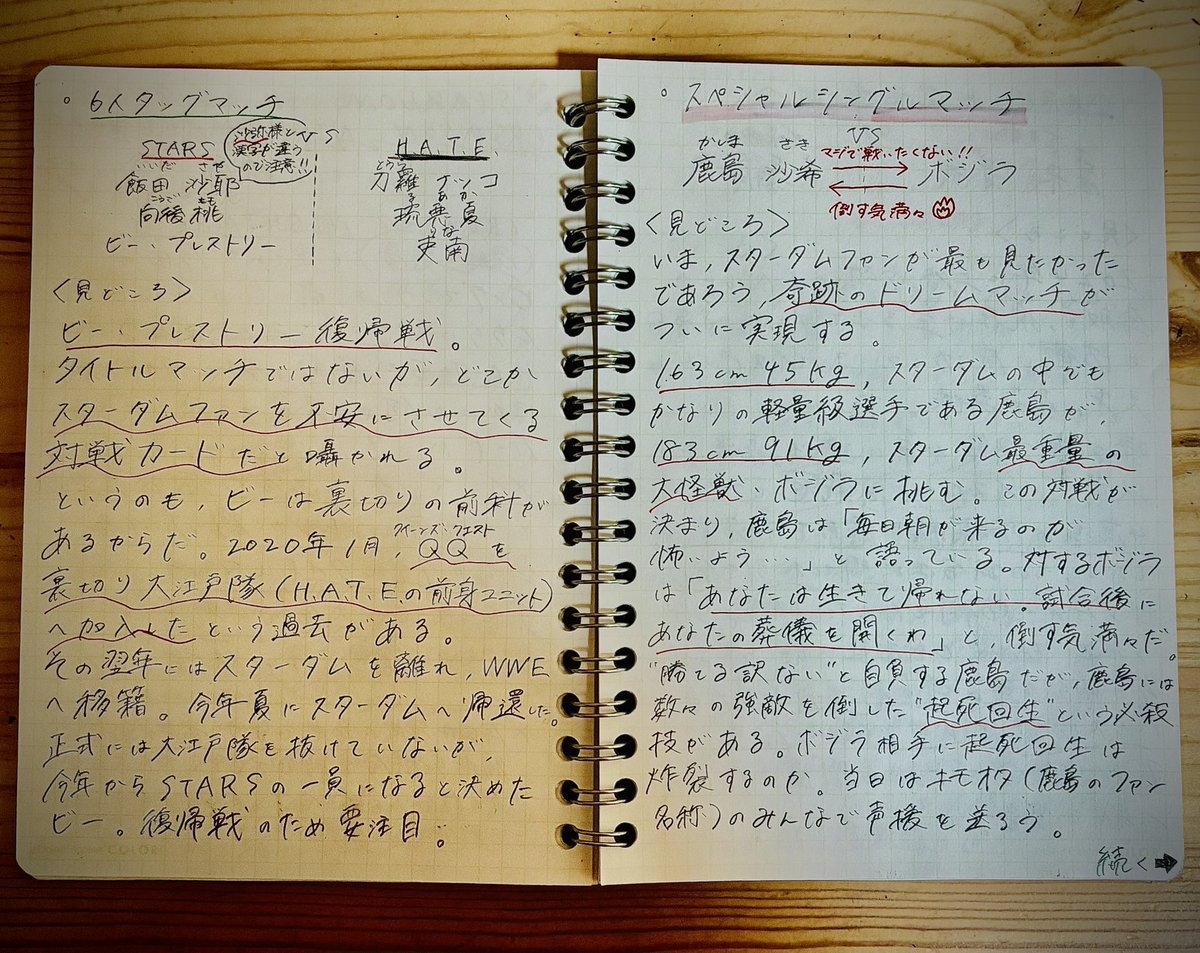 。6人タッグマッチ
VS
STARS
沙弥様と
漢字が違う
ので注意!!
いいだ さや
飯田 沙耶
こうご もも
向後 桃
ビー・プレストリー
H.A.T.E.
とうら
刀羅 ナツコ
るあか
琉悪夏
りな
吏南
〈見どころ〉
ビー・プレストリー復帰戦。
タイトルマッチではないが、どこか
スターダムファンを不安にさせてくる
対戦カードだと囁かれる。
というのも、ビーは裏切りの前科が
クイーンズ・クエスト
あるからだ。2020年1月、QQを
裏切り大江戸隊(H.A.T.E.の前身ユニット)
へ加入したという過去がある。
その翌年にはスターダムを離れ、WWE
へ移籍。今年夏にスターダムへ帰還した。
正式には大江戸隊を抜けていないが、
今年からSTARSの一員になると決めた
ビー。復帰戦のため要注目。
。スペシャルシングルマッチ
VS
かしま さき
鹿島 沙希
マジで戦いたくない!!
ボジラ
倒す気満々
〈見どころ〉
いま、スターダムファンが最も見たかった
であろう、奇跡のドリームマッチが
ついに実現する。
163cm 45kg、スターダムの中でも
かなりの軽量級選手である鹿島が、
183cm 91kg、スターダム最重量の
大怪獣・ボジラに挑む。この対戦が
決まり、鹿島は「毎日朝が来るのが
怖いよう…」と語っている。対するボジラ
は「あなたは生きて帰れない。試合後に
あなたの葬儀を開くわ」と、倒す気満々だ。
"勝てる訳ない"と自負する鹿島だが、鹿島には
数々の強敵を倒した"起死回生"という必殺
技がある。ボジラ相手に起死回生は
炸裂するのか。当日はキモオタ(鹿島のファン
名称)のみんなで声援を送ろう。
続く➡